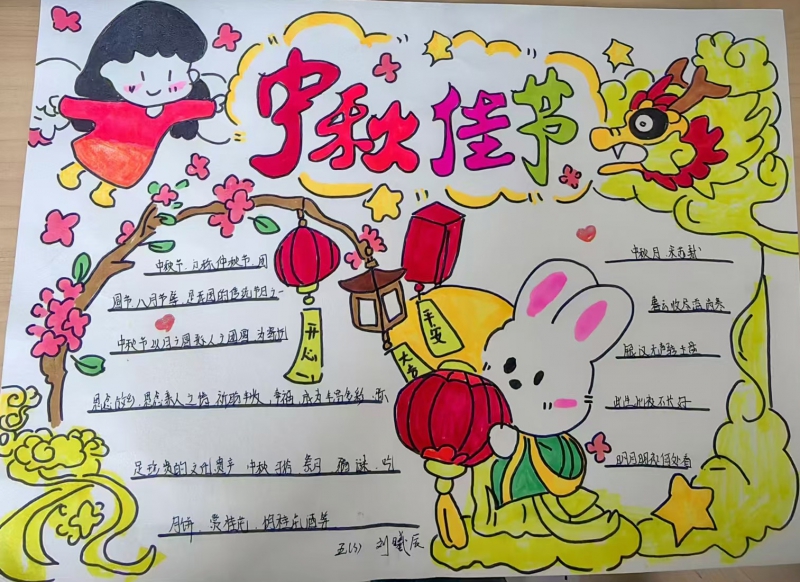 中秋佳节
中秋节，又称仲秋节、团
圆节、八月节等，是我国的传统节日之一
中秋节以月之圆 人之团圆，为寄托
思念故乡，思念亲人之情，祈盼丰收、幸福，成为丰富多彩、弥
足珍贵的文化遗产 中秋 赏月 猜谜、吃
月饼、赏桂花、桂花酒等
开心
平安
大吉
五(5) 刘曦辰
中秋月 宋苏轼
暮云收尽溢清寒
银汉无声转玉盘
此生此夜不长好
明月明年何处看